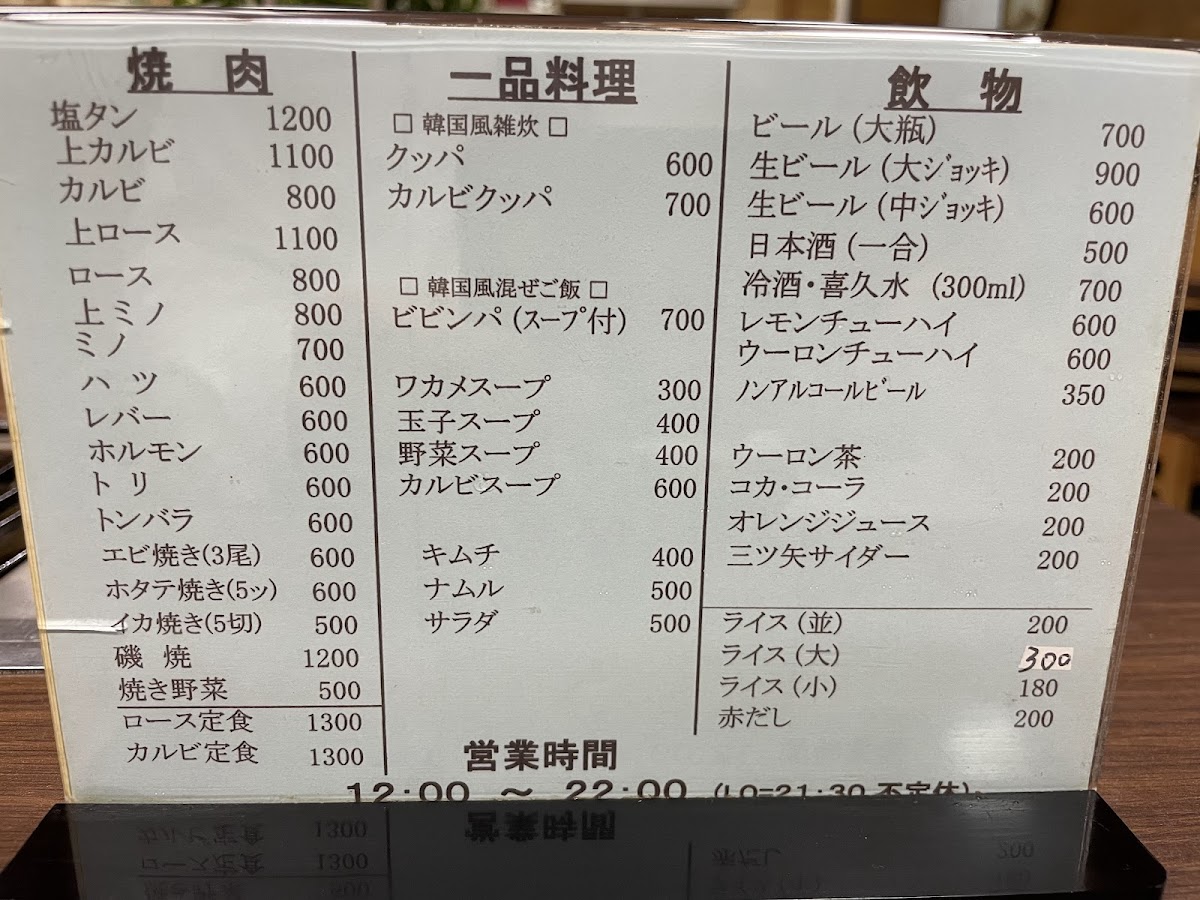 焼 肉
塩タン 1200
上カルビ 1100
カルビ 800
上ロース 1100
ロース 800
上ミノ 800
ミノ 700
ハ ツ 600
レバー 600
ホルモン 600
ト リ 600
トンバラ 600
エビ焼き(3尾) 600
ホタテ焼き(5ッ) 600
イカ焼き(5切) 500
磯 焼 1200
焼き野菜 500
ロース定食 1300
カルビ定食 1300
一品料理
□ 韓国風雑炊 □
クッパ 600
カルビクッパ 700
□ 韓国風混ぜご飯 □
ビビンパ (ｽｰﾌﾟ付) 700
ワカメスープ 300
玉子スープ 400
野菜スープ 400
カルビスープ 600
キムチ 400
ナムル 500
サラダ 500
飲 物
ビール (大瓶) 700
生ビール (大ｼﾞｮｯｷ) 900
生ビール (中ｼﾞｮｯｷ) 600
日本酒 (一合) 500
冷酒・喜久水 (300ml) 700
レモンチューハイ 600
ウーロンチューハイ 600
ﾉﾝｱﾙｺｰﾙﾋﾞｰﾙ 350
ウーロン茶 200
コカ・コーラ 200
オレンジジュース 200
三ツ矢サイダー 200
ライス (並) 200
ライス (大) 300
ライス (小) 180
赤だし 200
営業時間
12:00 ～ 22:00 (LO=21:30 不定休)